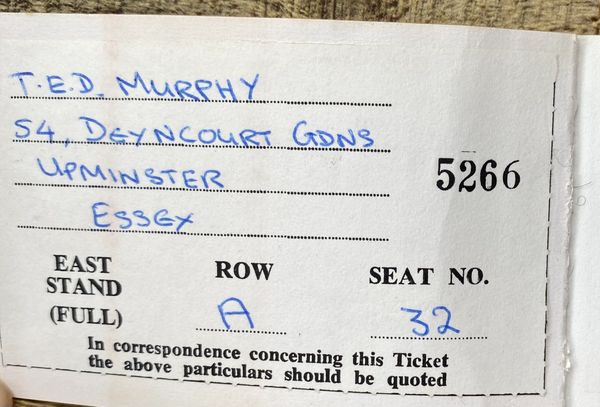 T.E.D. MURPHY
54, DEYNCOURT GDNS
UPMINSTER
5266
ESSEX
EAST STAND (FULL)
ROW
A
SEAT NO.
32
In correspondence concerning this Ticket
the above particulars should be quoted